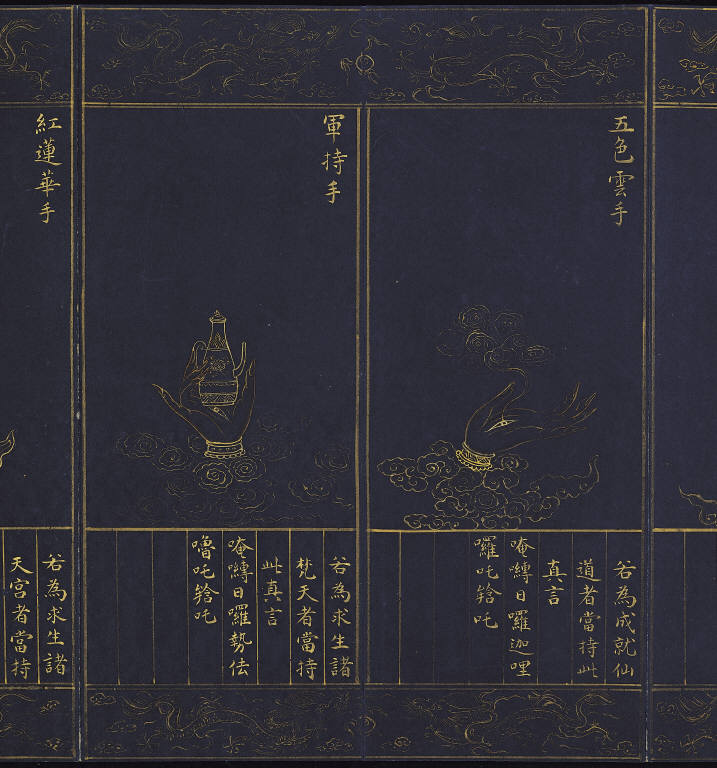 五色雲手
若為成就仙
道者當持此
真言
唵嚩日囉迦哩
囉吒𤙖吒
軍持手
若為求生諸
梵天者當持
此真言
唵嚩日囉勢佉
嚕吒𤙖吒
紅蓮華手
若為求生諸
天宮者當持